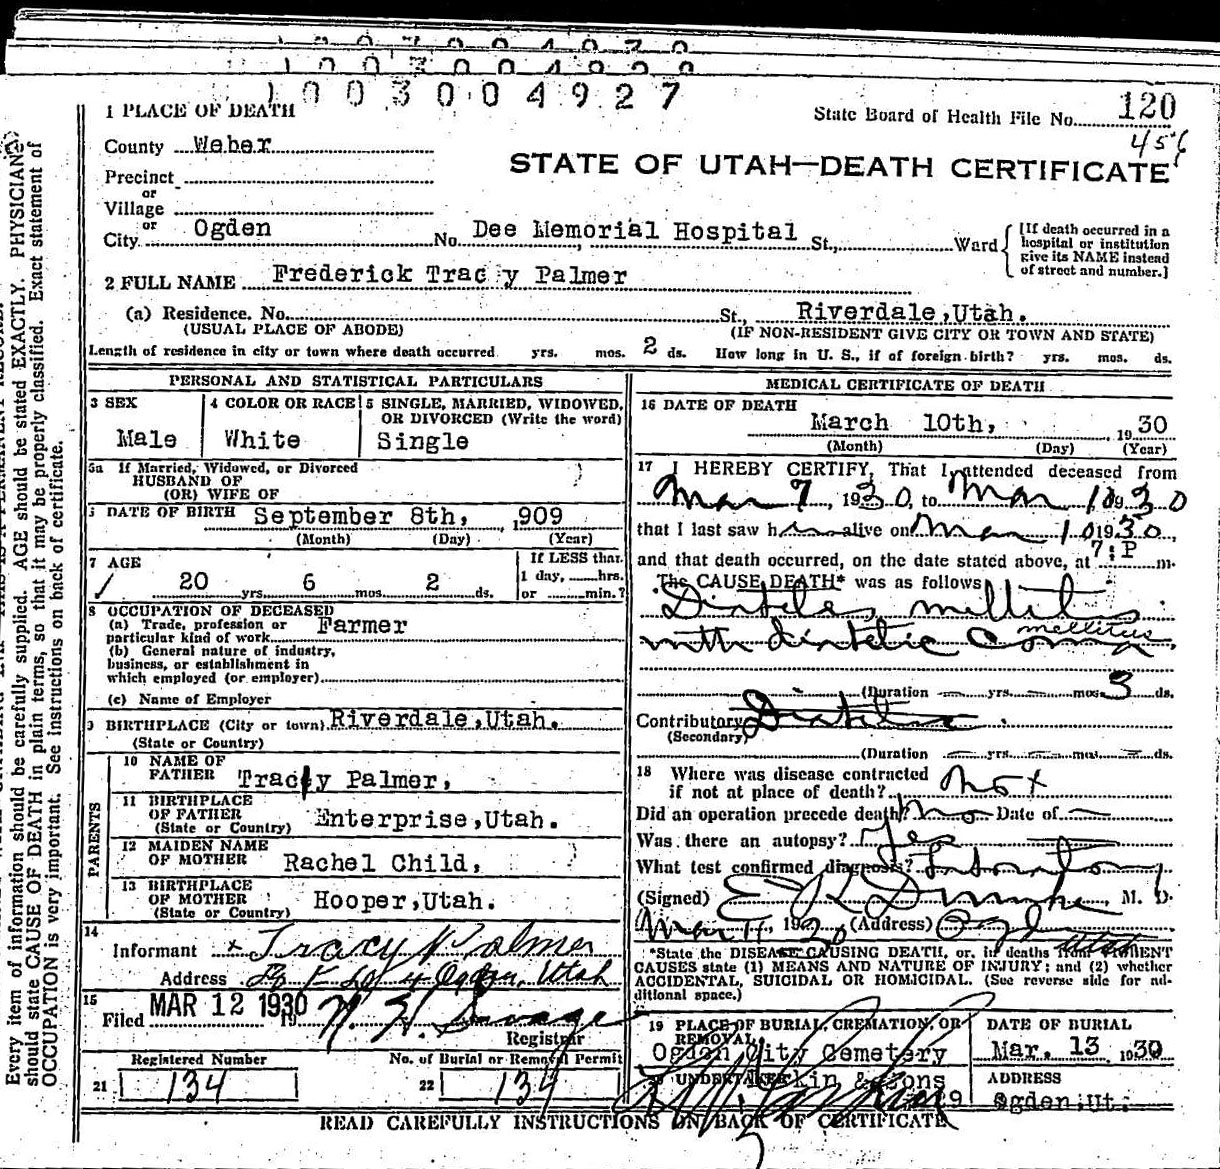 1003004927
1 PLACE OF DEATH
State Board of Health File No. 120
County Weber
456
STATE OF UTAH—DEATH CERTIFICATE
Precinct
or
Village
or
City Ogden No. Dee Memorial Hospital St., Ward
[If death occurred in a hospital or institution give its NAME instead of street and number.]
2 FULL NAME Frederick Tracy Palmer
(a) Residence. No. St., Riverdale, Utah.
(USUAL PLACE OF ABODE) (IF NON-RESIDENT GIVE CITY OR TOWN AND STATE)
Length of residence in city or town where death occurred yrs. mos. 2 ds. How long in U. S., if of foreign birth? yrs. mos. ds.
PERSONAL AND STATISTICAL PARTICULARS
3 SEX
Male
4 COLOR OR RACE
White
5 SINGLE, MARRIED, WIDOWED,
OR DIVORCED (Write the word)
Single
5a If Married, Widowed, or Divorced
HUSBAND OF
(OR) WIFE OF
DATE OF BIRTH September 8th, 1909
(Month) (Day) (Year)
7 AGE
20 yrs. 6 mos. 2 ds.
If LESS than
1 day, hrs.
or min.?
8 OCCUPATION OF DECEASED
(a) Trade, profession or
particular kind of work Farmer
(b) General nature of industry,
business, or establishment in
which employed (or employer)
(c) Name of Employer
9 BIRTHPLACE (City or town) Riverdale, Utah.
(State or Country)
PARENTS
10 NAME OF
FATHER Tracy Palmer,
11 BIRTHPLACE
OF FATHER
(State or Country) Enterprise, Utah.
12 MAIDEN NAME
OF MOTHER Rachel Child,
13 BIRTHPLACE
OF MOTHER
(State or Country) Hooper, Utah.
14
Informant Tracy Palmer
Address Ogden, Utah
15
Filed MAR 12 1930 19 Savage
Registrar
Registered Number
21 134
No. of Burial or Removal Permit
22 134
MEDICAL CERTIFICATE OF DEATH
16 DATE OF DEATH
March 10th, 1930
(Month) (Day) (Year)
17 I HEREBY CERTIFY, That I attended deceased from
Mar 7, 1930, to Mar 10 1930
that I last saw him alive on Mar 10 1930,
and that death occurred, on the date stated above, at 7:P m.
The CAUSE DEATH* was as follows
Diabetes mellitus
mellitus
with diabetic Coma
(Duration yrs. mos. 3 ds.
Contributory
(Secondary)
(Duration yrs. mos. ds.
18 Where was disease contracted
if not at place of death? not
Did an operation precede death? no Date of
Was there an autopsy? Yes
What test confirmed diagnosis? Laboratory
(Signed) E R Dumke, M. D.
Mar 11, 1930 (Address) Ogden
Utah
*State the DISEASE CAUSING DEATH, or, in deaths from VIOLENT
CAUSES state (1) MEANS AND NATURE OF INJURY; and (2) whether
ACCIDENTAL, SUICIDAL OR HOMICIDAL. (See reverse side for ad-
ditional space.)
19 PLACE OF BURIAL, CREMATION, OR
REMOVAL
Ogden City Cemetery
DATE OF BURIAL
Mar. 13, 1930
UNDERTAKER Larkin & Sons
ADDRESS
Ogden, Ut.
READ CAREFULLY INSTRUCTIONS ON BACK OF CERTIFICATE
Every item of information should be carefully supplied. AGE should be stated EXACTLY. PHYSICIANS
should state CAUSE OF DEATH in plain terms, so that it may be properly classified. Exact statement of
OCCUPATION is very important. See instructions on back of certificate.